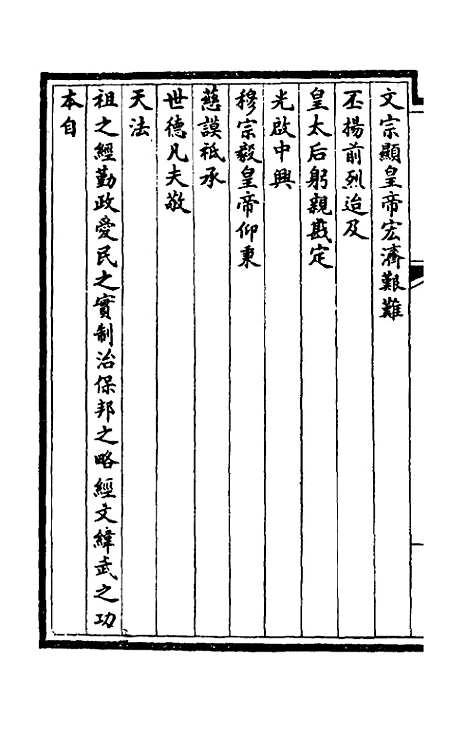 文宗顯皇帝宏濟艱難
丕揚前烈迨及
皇太后躬親戡定
光啟中興
穆宗毅皇帝仰秉
慈謨祗承
世德凡夫敬
天法
祖之經勤政愛民之實制治保邦之略經文緯武之功
本自